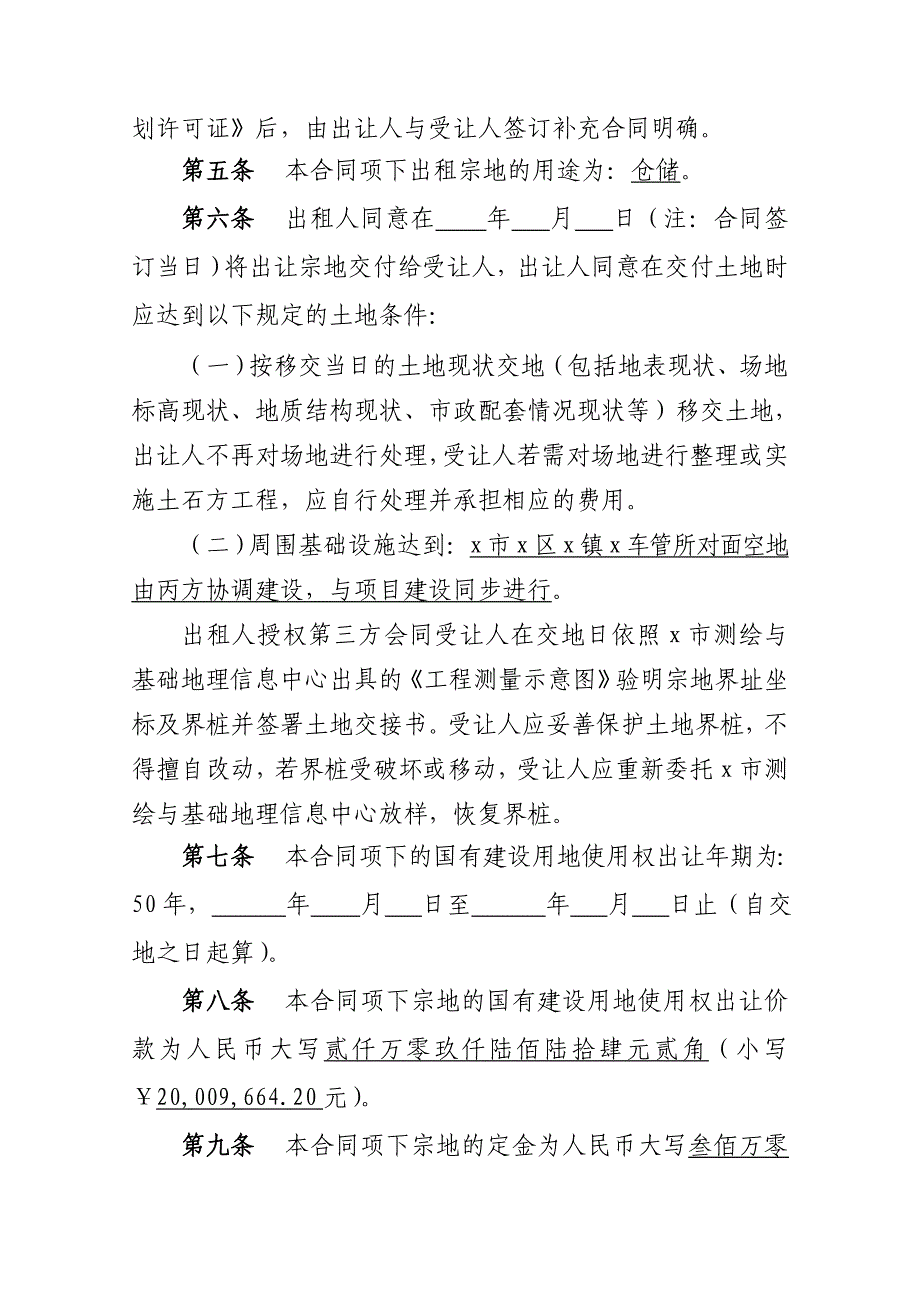 划许可证》后，由出让人与受让人签订补充合同明确。
第五条　本合同项下出租宗地的用途为：仓储。
第六条　出租人同意在____年___月___日（注：合同签
订当日）将出让宗地交付给受让人，出让人同意在交付土地时
应达到以下规定的土地条件：
（一）按移交当日的土地现状交地（包括地表现状、场地
标高现状、地质结构现状、市政配套情况现状等）移交土地，
出让人不再对场地进行处理，受让人若需对场地进行整理或实
施土石方工程，应自行处理并承担相应的费用。
（二）周围基础设施达到：x市x区x镇x车管所对面空地
由丙方协调建设，与项目建设同步进行。
出租人授权第三方会同受让人在交地日依照 x 市测绘与
基础地理信息中心出具的《工程测量示意图》验明宗地界址坐
标及界桩并签署土地交接书。受让人应妥善保护土地界桩，不
得擅自改动，若界桩受破坏或移动，受让人应重新委托 x 市测
绘与基础地理信息中心放样，恢复界桩。
第七条　本合同项下的国有建设用地使用权出让年期为：
50 年，______年____月___日至______年___月___日止（自交
地之日起算）。
第八条　本合同项下宗地的国有建设用地使用权出让价
款为人民币大写贰仟万零玖仟陆佰陆拾肆元贰角（小写
￥20,009,664.20元）。
第九条　本合同项下宗地的定金为人民币大写叁佰万零